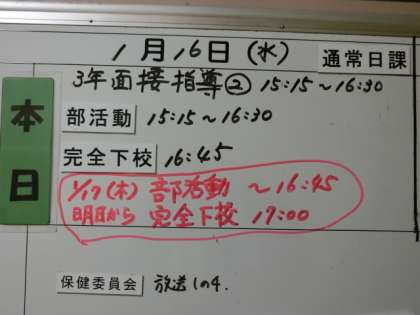 1月16日(水) 通常日課
本日
3年面接指導② 15:15～16:30
部活動 15:15～16:30
完全下校 16:45
1/17(木) 部活動 ～16:45
明日から 完全下校 17:00
保健委員会 放送しの4.